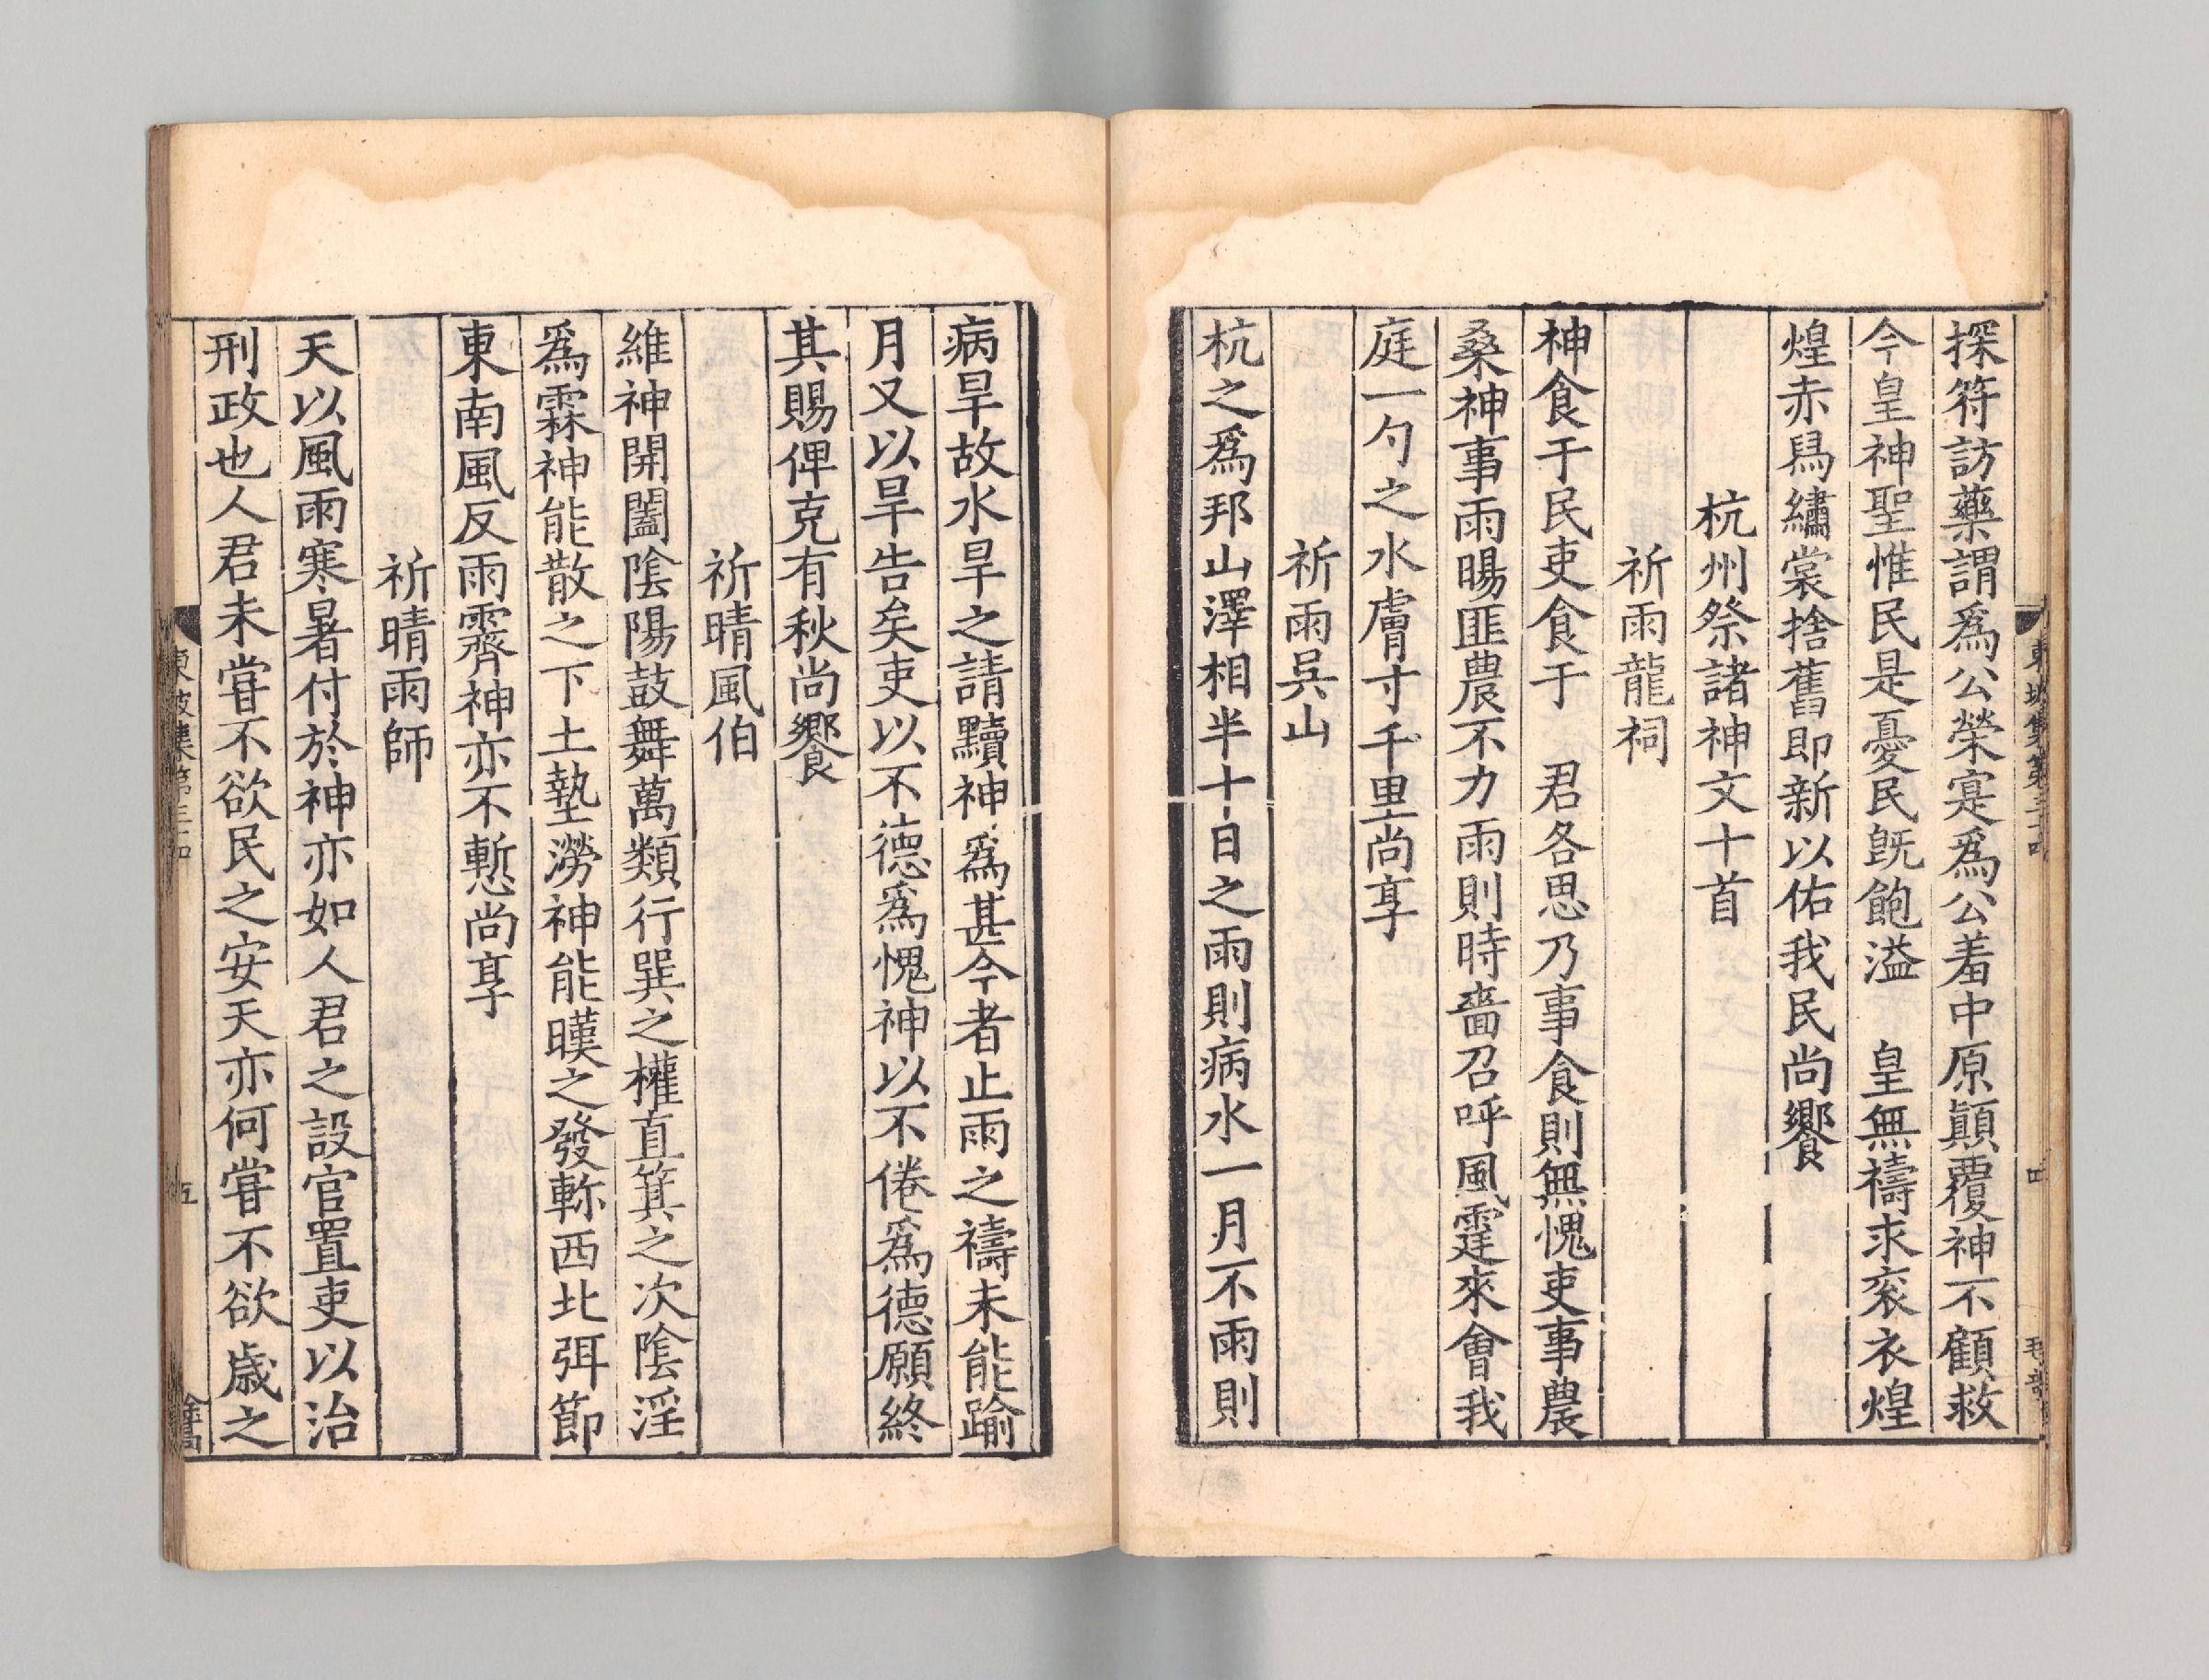 東坡集第三十四
四
探符訪藥謂爲公榮寔爲公羞中原顚覆神不顧救
今皇神聖惟民是憂民旣飽溢　皇無禱求衮衣煌
煌赤舄繡裳捨舊即新以佑我民尚饗
杭州祭諸神文十首
祈雨龍祠
神食于民吏食于　君各思乃事食則無愧吏事農
桑神事雨暘匪農不力雨則時嗇召呼風霆來會我
庭一勺之水膚寸千里尚享
祈雨吳山
杭之爲邦山澤相半十日之雨則病水一月不雨則
病旱故水旱之請黷神爲甚今者止雨之禱未能踰
月又以旱告矣吏以不德爲愧神以不倦爲德願終
其賜俾克有秋尚饗
祈晴風伯
維神開闔陰陽鼓舞萬類行巽之權直箕之次陰淫
爲霖神能散之下土墊澇神能暵之發軫西北弭節
東南風反雨霽神亦不慙尚享
祈晴雨師
天以風雨寒暑付於神亦如人君之設官置吏以治
刑政也人君未嘗不欲民之安天亦何嘗不欲歳之
東坡集第三十四
五